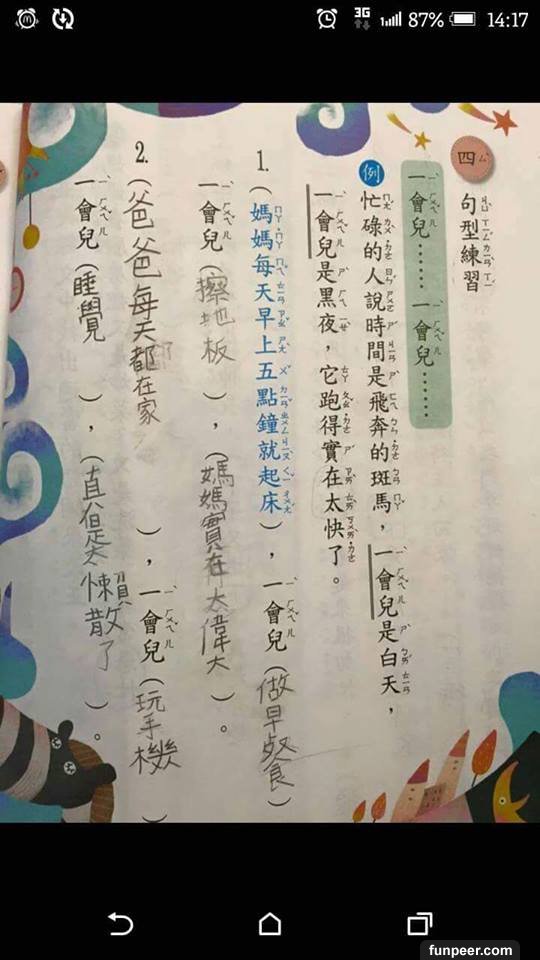 3G 87% 14:17
四 句型練習
一會兒……一會兒……
例 忙碌的人說時間是飛奔的斑馬，一會兒是白天，
一會兒是黑夜，它跑得實在太快了。
1. (媽媽每天早上五點鐘就起床)，一會兒(做早餐)
一會兒(擦地板)，(媽媽實在太偉大)。
2. (爸爸每天都在家)，一會兒(玩手機)
一會兒(睡覺)，(是太懶散了)。
funpeer.com